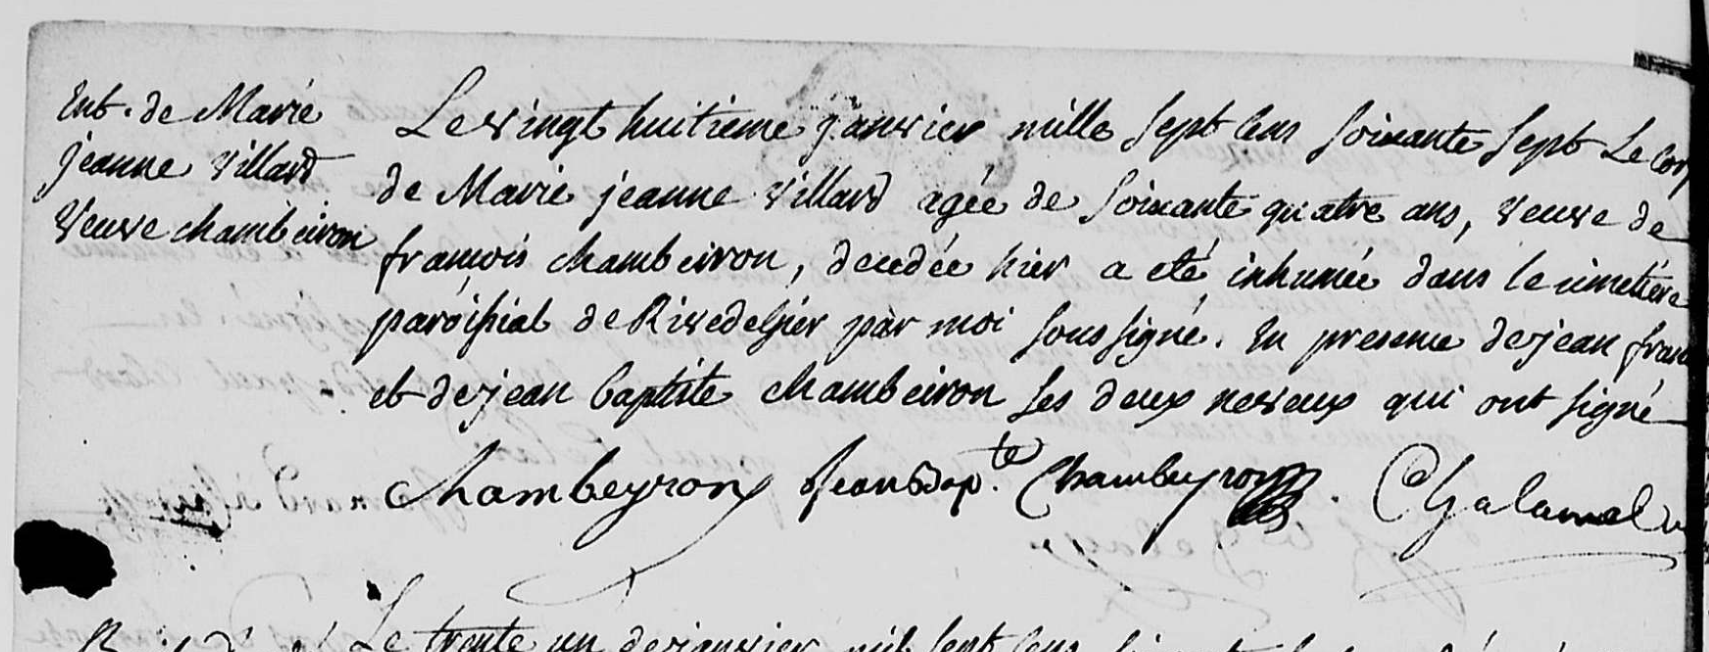 Ent. de Marie
jeanne villard
veuve chambeiron
Le vingt huitieme janvier mille sept cens soixante sept Le Corp
de Marie jeanne villard agée de soixante quatre ans, veuve de
francois chambeiron, decedée hier a eté inhumée dans le cimetiere
paroissial de Rivedegier par moi soussigné. En presence de jean fran
et de jean baptiste chambeiron ses deux neveux qui ont signé
Chambeyron Jean Bap.te Chambeyron. Chalamel
Le trente un de janvier mil sept cens